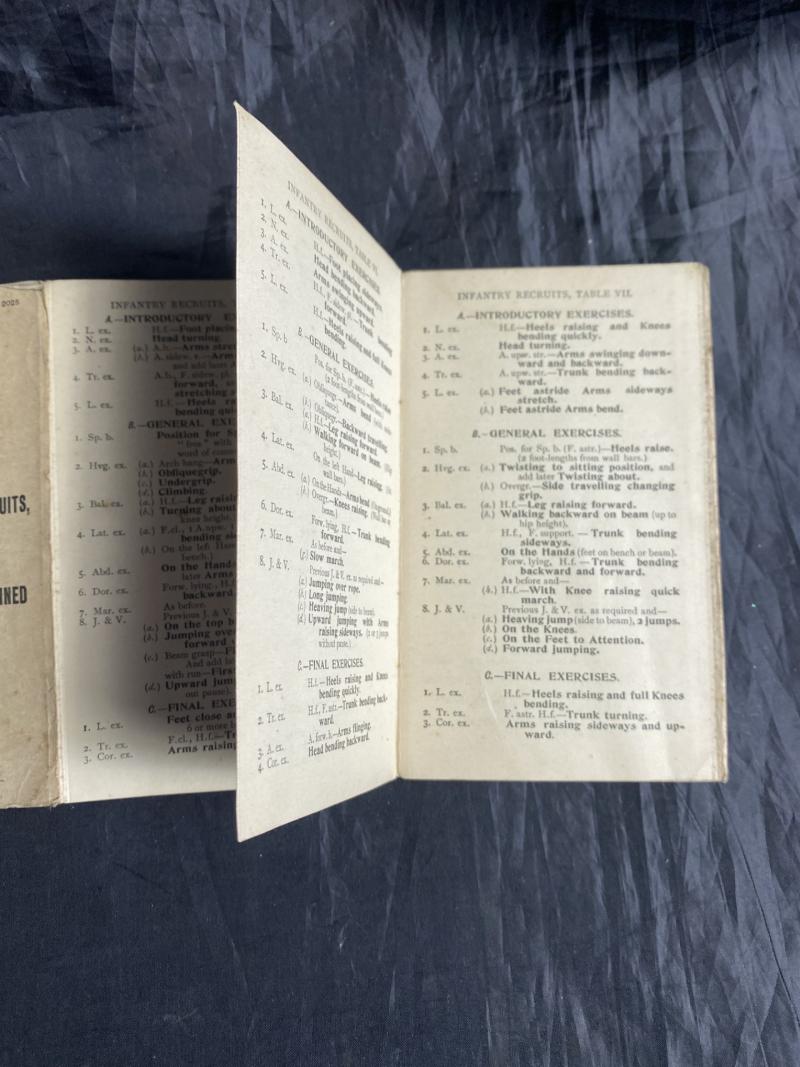 2025
UITS,
NED
INFANTRY RECRUITS, T
A.—INTRODUCTORY EX
1. L. ex. H.f.—Foot placin
2. N. ex. Head turning.
3. A. ex. (a.) A.b.—Arms stret
(b.) A. sidew. s.—Arm
and add later A
4. Tr. ex. A.b., F. sidew. pl.
forward,
stretching
5. L. ex. H.f.—Heels ra
bending qui
B.—GENERAL EXE
1. Sp. b. Position for Sp
"fess" with
word of comm
2. Hvg. ex. (a.) Arch hang—Arm
(b.) Obliquegrip.
(c.) Undergrip.
(d.) Climbing.
3. Bal. ex. (a.) H.f.—Leg raisin
(b.) Turning about
knee height.
4. Lat. ex. (a.) F.cl., 1 A.upw. 1
bending si
(b.) On the left Hand
bench.)
5. Abd. ex. On the Hands
later Arms
6. Dor. ex. Forw. lying, H.f
backward
7. Mar. ex. As before.
8. J. & V. Previous J. & V.
(a.) On the top b
(b.) Jumping over
forward
(c.) Beam grasp—Fi
And add la
with run—First
(d.) Upward jump
out pause).
C.—FINAL EXE
1. L. ex. Feet close a
6 or more
2. Tr. ex. F.cl., H.f.—Tr
3. Cor. ex. Arms raising
INFANTRY RECRUITS, TABLE VI.
A.—INTRODUCTORY EXERCISES.
1. L. ex. H.f.—Foot placing sideways.
2. N. ex. Head bending backward.
3. A. ex. Arms swinging upward.
4. Tr. ex. H.f., F. sidew. pl.—Trunk bending
forward.
5. L. ex. H.f.—Heels raising and full Knees
bending.
B.—GENERAL EXERCISES.
1. Sp. b. Pos. for Sp. b. (F. astr.)—Heels raise.
(2 foot-lengths from wall bars.)
2. Hvg. ex. (a.) Obliquegr.—Arms bend (with assis-
tance).
(b.) Obliquegr.—Backward travelling.
3. Bal. ex. (a.) H.f.—Leg raising forward.
(b.) Walking forward on beam. (Hip
height.)
4. Lat. ex. On the left Hand—Leg raising. (On
wall bars.)
5. Abd. ex. (a.) On the Hands—Arms bend (On ground.)
(b.) Overgr.—Knees raising. (Wall bars or
beam.)
6. Dor. ex. Forw. lying, H.f.—Trunk bending
forward.
7. Mar. ex. As before and—
(g.) Slow march.
8. J. & V. Previous J. & V. ex. as required and—
(a.) Jumping over rope.
(b.) Long jumping.
(c.) Heaving jump (side to beam).
(d.) Upward jumping with Arms
raising sideways. (2 or 3 jumps
without pause.)
C.—FINAL EXERCISES.
1. L. ex. H.f.—Heels raising and Knees
bending quickly.
2. Tr. ex. H.f., F. astr.—Trunk bending back-
ward.
3. A. ex. A. forw. b.—Arms flinging.
4. Cor. ex. Head bending backward.
INFANTRY RECRUITS, TABLE VII.
A.—INTRODUCTORY EXERCISES.
1. L. ex. H.f.—Heels raising and Knees
bending quickly.
2. N. ex. Head turning.
3. A. ex. A. upw. str.—Arms swinging down-
ward and backward.
4. Tr. ex. A. upw. str.—Trunk bending back-
ward.
5. L. ex. (a.) Feet astride Arms sideways
stretch.
(b.) Feet astride Arms bend.
B.—GENERAL EXERCISES.
1. Sp. b. Pos. for Sp. b. (F. astr.)—Heels raise.
(2 foot-lengths from wall bars.)
2. Hvg. ex. (a.) Twisting to sitting position, and
add later Twisting about.
(b.) Overgr.—Side travelling changing
grip.
3. Bal. ex. (a.) H.f.—Leg raising forward.
(b.) Walking backward on beam (up to
hip height).
4. Lat. ex. H.f., F. support.—Trunk bending
sideways.
5. Abd. ex. On the Hands (feet on bench or beam).
6. Dor. ex. Forw. lying, H.f.—Trunk bending
backward and forward.
7. Mar. ex. As before and—
(h.) H.f.—With Knee raising quick
march.
8. J. & V. Previous J. & V. ex. as required and—
(a.) Heaving jump (side to beam), 2 jumps.
(b.) On the Knees.
(c.) On the Feet to Attention.
(d.) Forward jumping.
C.—FINAL EXERCISES.
1. L. ex. H.f.—Heels raising and full Knees
bending.
2. Tr. ex. F. astr. H.f.—Trunk turning.
3. Cor. ex. Arms raising sideways and up-
ward.